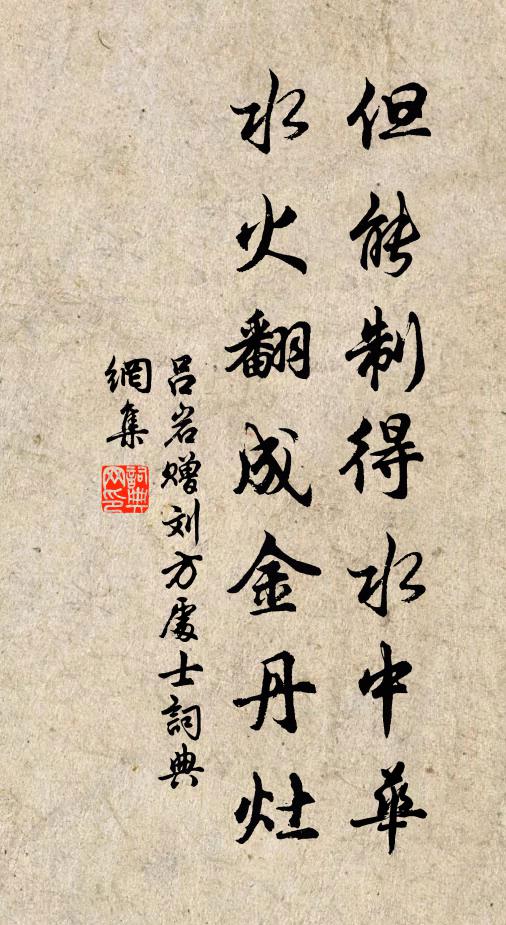 但能制得水中華
水火翻成金丹灶
吕岩贈刘方處士詞典
網集
詞典
网印